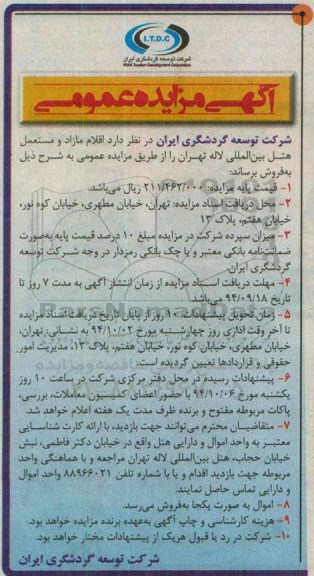 I.T.D.C
شرکت توسعه گردشگری ایران
IRAN Tourism Development Corporation
آگهی مزایده عمومی
شرکت توسعه گردشگری ایران در نظر دارد اقلام مازاد و مستعمل
هتل بین‌المللی لاله تهران را از طریق مزایده عمومی به شرح ذیل
به‌فروش برساند:
۱- قیمت پایه مزایده: ۲۱۱/۴۶۲/۰۰۰ ریال می‌باشد.
۲- محل دریافت اسناد مزایده: تهران، خیابان مطهری، خیابان کوه نور،
خیابان هفتم، پلاک ۱۳
۳- میزان سپرده شرکت در مزایده مبلغ ۱۰ درصد قیمت پایه به‌صورت
ضمانت‌نامه بانکی معتبر و یا چک بانکی رمزدار در وجه شرکت توسعه
گردشگری ایران.
۴- مهلت دریافت اسناد مزایده از زمان انتشار آگهی به مدت ۷ روز تا
تاریخ ۹۴/۰۹/۱۸ می‌باشد.
۵- زمان تحویل پیشنهادات ۱۰ روز از پایان تاریخ دریافت اسناد مزایده
تا آخر وقت اداری روز چهارشنبه مورخ ۹۴/۱۰/۰۲ به نشانی تهران،
خیابان مطهری، خیابان کوه نور، خیابان هفتم، پلاک ۱۳، مدیریت امور
حقوقی و قراردادها تعیین گردیده است.
۶- پیشنهادات رسیده در محل دفتر مرکزی شرکت در ساعت ۱۰ روز
یکشنبه مورخ ۹۴/۱۰/۰۶ با حضور اعضای کمیسیون معاملات، بررسی،
پاکات مربوطه مفتوح و برنده ظرف مدت یک هفته اعلام خواهد شد.
۷- متقاضیان محترم می‌توانند جهت بازدید، با ارائه کارت شناسایی
معتبر به واحد اموال و دارایی هتل واقع در خیابان دکتر فاطمی، نبش
خیابان حجاب، هتل بین‌المللی لاله تهران مراجعه و با هماهنگی واحد
مربوطه جهت بازدید اقدام و یا با شماره تلفن ۸۸۹۶۶۰۲۱ واحد اموال
و دارایی تماس حاصل نمایند.
۸- اموال به صورت یکجا به‌فروش می‌رسد.
۹- هزینه کارشناسی و چاپ آگهی به‌عهده برنده مزایده خواهد بود.
۱۰- شرکت در رد یا قبول هریک از پیشنهادات مختار خواهد بود.
شرکت توسعه گردشگری ایران